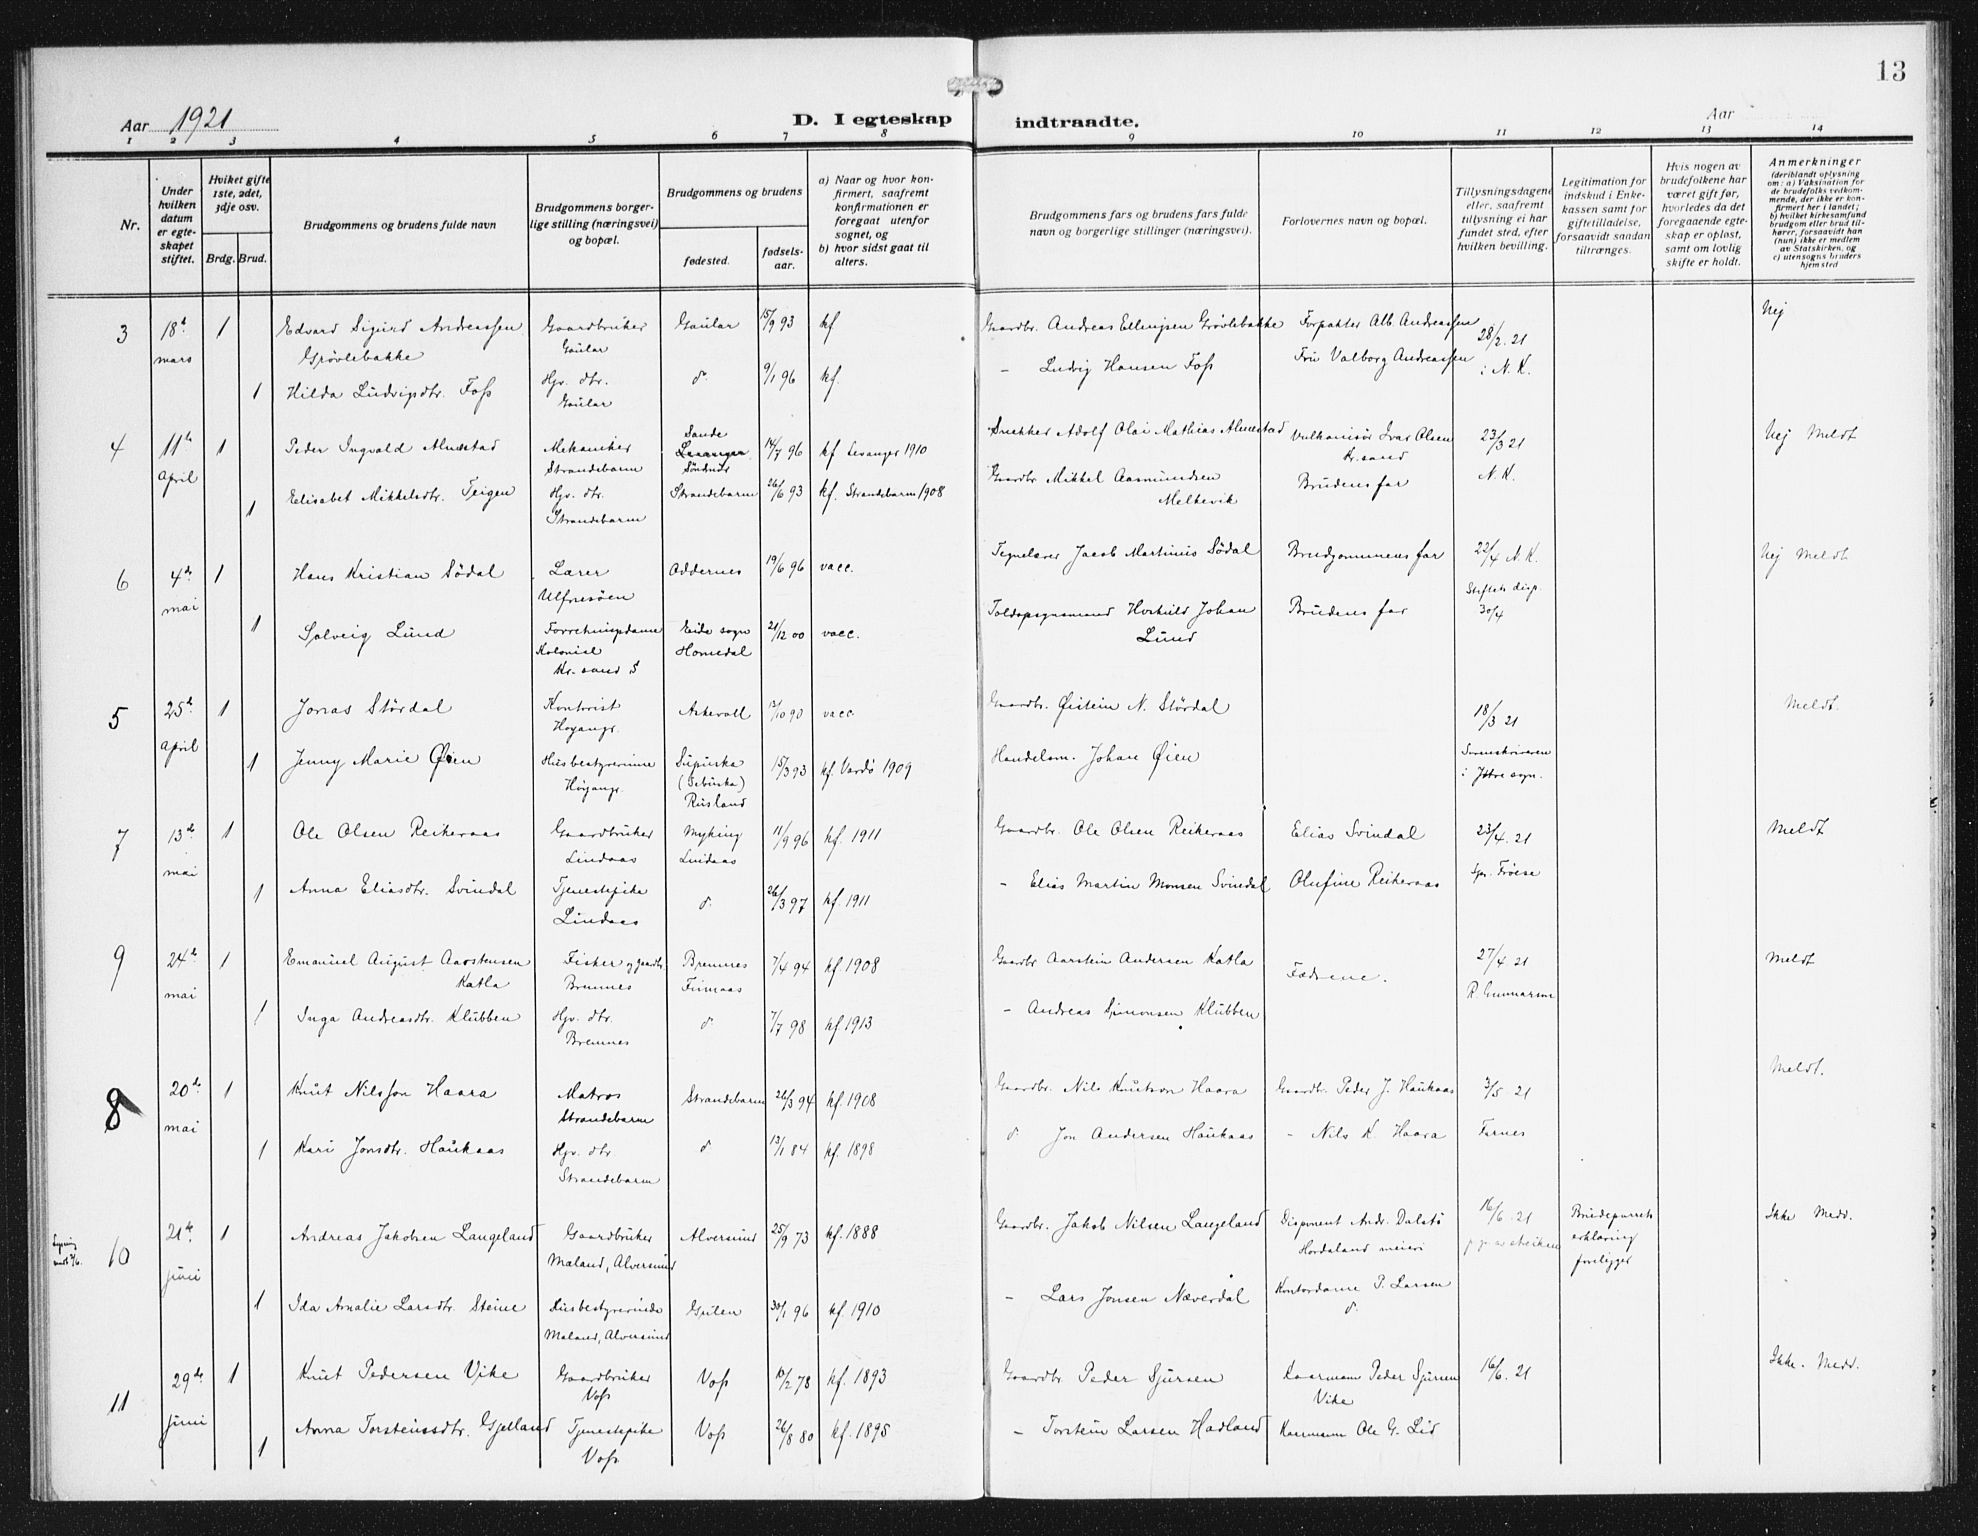 13
Aar 1921
D. I egteskap indtraadte.
Aar
1 2 3 4 5 6 7 8 9 10 11 12 13 14
Nr.
Under hvilken datum er egteskapet stiftet.
Hvilket gifte 1ste, 2det, 3dje osv.
Brdg. Brud.
Brudgommens og brudens fulde navn
Brudgommens borgerlige stilling (næringsvei) og bopæl.
Brudgommens og brudens
fødested.
fødselsaar.
a) Naar og hvor konfirmert, saafremt konfirmationen er foregaat utenfor sognet, og
b) hvor sidst gaat til alters.
Brudgommens fars og brudens fars fulde navn og borgerlige stillinger (næringsvei).
Forlovernes navn og bopæl.
Tillysningsdagene eller, saafremt tillysning ei har fundet sted, efter hvilken bevilling.
Legitimation for indskud i Enkekassen samt for giftetilladelse, forsaavidt saadan tiltrænges.
Hvis nogen av brudefolkene har været gift før, hvorledes da det foregaaende egteskap er opløst, samt om lovlig skifte er holdt.
Anmerkninger (deriblandt oplysning om: a) Vaksination for de brudefolks vedkommende, der ikke er konfirmert her i landet; b) hvilket kirkesamfund brudgom eller brud tilhører, forsaavidt han (hun) ikke er medlem av Statskirken, og c) utensogns bruders hjemsted
3 18de mars 1 Edvard Sigurd Andreassen Grøvlebakke Gaardbruker Gaular Gaular 15/9 93 kf Gaardbr. Andreas Ellingsen Grøvlebakke Forpakter Alb. Andreassen 28/2 21 i N. K. Nej
1 Hilda Ludvigsdtr. Foss Gjv. dtr. Gaular do. 9/1 96 kf. – Ludvig Hansen Foss Fru Valborg Andreassen
4 11te April 1 Peder Ingvald Almestad Mekaniker Strandebarm Sande Søndmør 14/7 96 kf Levanger 1910 Snekker Adolf Olai Mathias Almestad Vulkanisør Ivar Olsen Kr.sand 23/3 21 N. K. Nej Meldt
1 Elisabet Mikkelsdtr. Teigen Gjv. dtr. Strandebarm Strandebarm 26/6 93 kf. Strandebarm 1908 Gaardbr. Mikkel Aasmundsen Melkevik Brudens far
6 4de mai 1 Hans Kristian Sødal Lærer Ulfnesøen Oddernes 19/6 96 vacc. Tegnelærer Jacob Martinius Sødal Brudgommens far 22/4 N. K. Nej Meldt
1 Solveig Lund Forretningsdame Kolonial Kr. sand S Eide sogn Homedal 21/12 00 vacc. Toldopsynsmand Johan Lund Brudens far Stiftets disp. 30/4
5 25de April 1 Jonas Størdal Kontorist Høyangr. Askevoll 13/10 90 vacc. Gaardbr. Øistein N. Størdal 18/3 21 Meldt.
1 Jenny Marie Øien Husbestyrerinne Høyangr. (Sibuska) Rusland 15/3 93 kf. Vardø 1909 Handelsm. Johan Øien Sorenskriveren i Ytre sogn.
7 13de mai 1 Ole Olsen Reikeraas Gaardbruker Lindaas Myking Lindaas 11/9 96 kf. 1911 Gaardbr. Ole Olsen Reikeraas Elias Svindal 23/4. 21 Meldt
1 Anna Eliasdtr. Svindal Tjenestepike Lindaas do. 26/3 97 kf. 1911 – Elias Martin Monsen Svindal Olufine Reikeraas Spr. Frøise
9 24de mai 1 Emanuel August Aarstensen Katla Fisker og gaardbr. Bremnes Bremnes Finnaas 7/4 94 kf 1908 Gaardbr Aarstein Andersen Katla Fædrene. 27/4. 21 R. Gunnarson Meldt
1 Inga Andreasdtr. Klubben Gjv. dtr. Bremnes do. 7/7 98 kf 1913 – Andreas Simonsen Klubben
8 20de mai 1 Knut Nilsson Haara Matros Strandebarm Strandebarm 26/3 94 kf. 1908 Gaardbr. Nils Knutson Haara Gaardbr. Peder J. Haukaas 3/5 21 Meldt.
1 Kari Jonsdtr. Haukaas Gjv. dtr. Strandebarm do 13/1 84 kf. 1898 do. Jon Andersen Haukaas – Nils K. Haara Farnes
10 21de juni 1 Andreas Jakobsen Langeland Gaardbruker Mæland, Alversund Alversund 25/9 73 kf. 1888 Gaardbr. Jakob Nilsen Langeland Disponent Andr. Dalstø Hordaland meieri 16/6. 21 Brudeparrets erklæring foreligger Ikke Medd.
1 Ida Amalie Larsdtr. Steine Husbestyrerinde Mæland, Alversund Gulen 30/1 96 kf. 1910 – Lars Jonsen Næverdal Kontordame P. Larsen do.
11 29de juni 1 Knut Pedersen Vike Gaardbruker Voss Voss 10/2 78 kf. 1893 Gaardbr. Peder Sjursen Kaarmann Peder Sjursen Vike 16/6. 21 Ikke. Medd.
1 Anna Torsteinsdtr. Gjelland Tjenestepike Voss Voss 26/8 80 kf. 1895 – Torstein Larsen Hadland Kaarmann Ole G. Lid